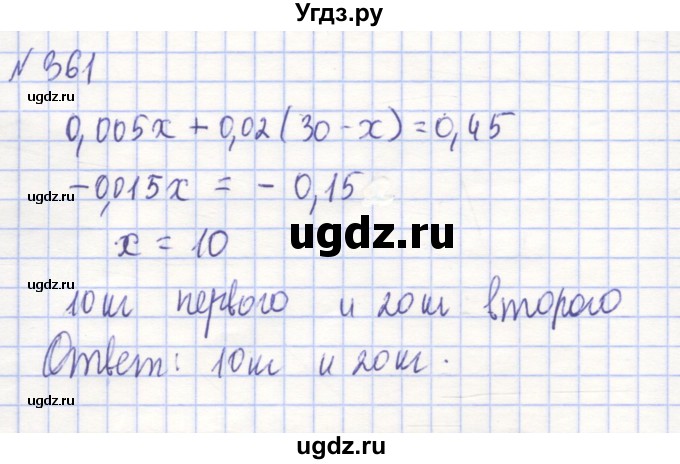 Угдз.ру
N 361
ugdz.ru
0,005x + 0,02(30 - x) = 0,45
ugdz.ru
-0,015x = - 0,15
ugdz.ru
x = 10
ugdz.ru
10 кг первого и 20 кг второго
ugdz.ru
Ответ: 10 кг и 20 кг.
ugdz.ru
ugdz.ru